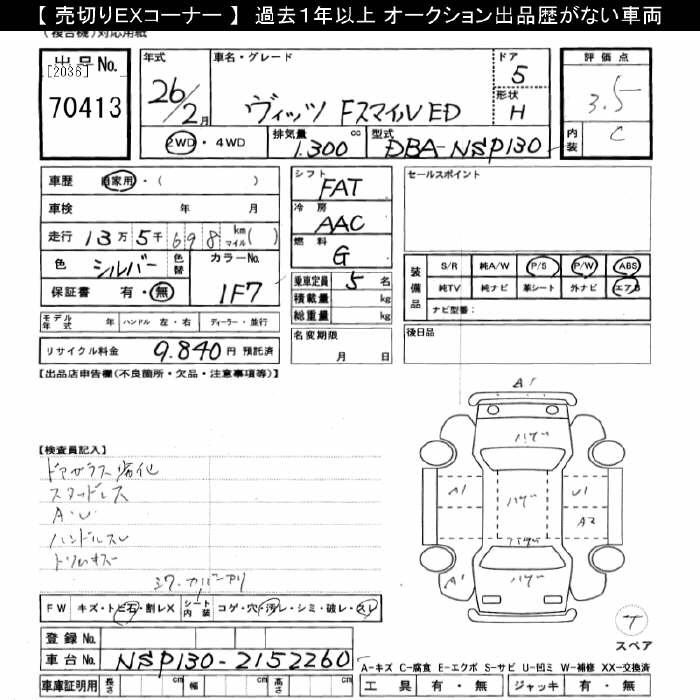 【 売切りEXコーナー 】 過去1年以上 オークション出品歴がない車両
(複合機)対応用紙
出品No.
[2036]
70413
年式
26/2月
車名・グレード
ヴィッツ FスマイルED
ドア
5
形状
H
評価点
3.5
内装
C
2WD・4WD
排気量 cc
1.300
型式
DBA-NSP130
車歴 自家用・( )
車検 年 月
走行 13万5千698 km マイル( )
色 シルバー 色替
カラーNo.
1F7
保証書 有・無
シフト
FAT
冷房
AAC
燃料
G
乗車定員 5 名
積載量 kg
総重量 kg
セールスポイント
装備品
S/R 純A/W P/S P/W ABS
純TV 純ナビ 革シート 外ナビ エアB
ナビ型番:
モデル年式 年 ハンドル 左・右 ディーラー・並行
リサイクル料金 9.840 円 預託済
名変期限
月 日
後日品
【出品店申告欄(不良箇所・欠品・注意事項等)】
【検査員記入】
スタッドレス
A・U
ハンドルスレ
トリムキズ
A1
ハゲ
A1
ハゲ
U1
A2
A1
ハゲ
FW キズ・トビ石・割レX シート内装 コゲ・穴・汚レ・シミ・破レ・スレ
登録No.
車台No. NSP130-2152260
車庫証明用 長さ cm 幅 cm 高さ cm
スペア
A-キズ C-腐食 E-エクボ S-サビ U-凹ミ W-補修 XX-交換済
工具 有・無 ジャッキ 有・無